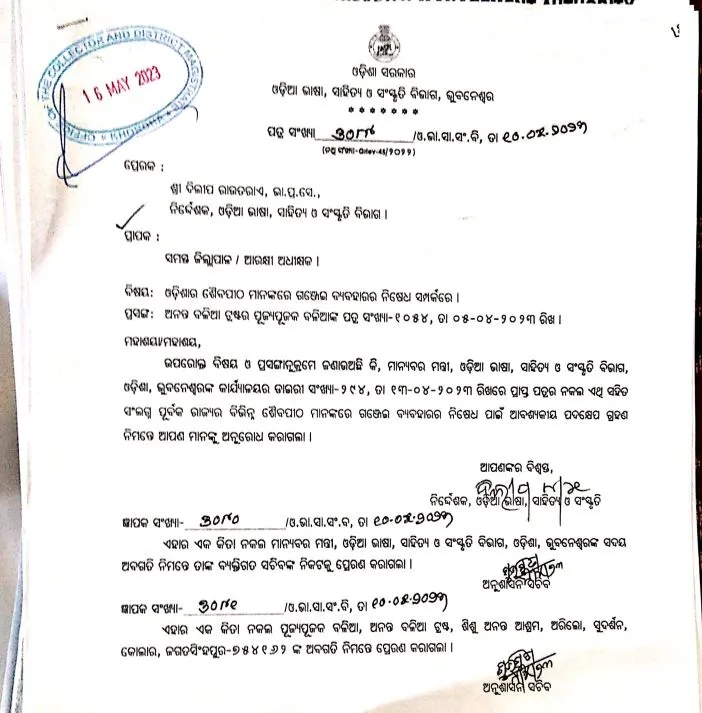 OFFICE OF THE COLLECTOR AND DISTRICT MAGISTRATE
KHURDHA
16 MAY 2023
ଓଡ଼ିଶା ସରକାର
ଓଡ଼ିଆ ଭାଷା, ସାହିତ୍ୟ ଓ ସଂସ୍କୃତି ବିଭାଗ, ଭୁବନେଶ୍ୱର
*******
ପତ୍ର ସଂଖ୍ୟା /ଓ.ଭା.ସା.ସଂ.ବି, ତା ୧୦.୦୫.୨୦୨୩
ପ୍ରେରକ :
ଶ୍ରୀ ଦିଲୀପ ରାଉତରାଏ, ଭା.ପ୍ର.ସେ.,
ନିର୍ଦ୍ଦେଶକ, ଓଡ଼ିଆ ଭାଷା, ସାହିତ୍ୟ ଓ ସଂସ୍କୃତି ବିଭାଗ ।
ପ୍ରାପକ :
ସମସ୍ତ ଜିଲ୍ଲାପାଳ / ଆରକ୍ଷୀ ଅଧୀକ୍ଷକ ।
ବିଷୟ: ଓଡ଼ିଶାର ଶୈବପୀଠ ମାନଙ୍କରେ ଗଞ୍ଜେଇ ବ୍ୟବହାରର ନିଷେଧ ସମ୍ପର୍କରେ ।
ପ୍ରସଙ୍ଗ: ଅନନ୍ତ ବଳିଆ ଟ୍ରଷ୍ଟର ପୂଜ୍ୟପୂଜକ ବଳିଆଙ୍କ ପତ୍ର ସଂଖ୍ୟା-୧୦୫୪, ତା ୦୫-୦୪-୨୦୨୩ ରିଖ ।
ମହାଶୟା/ମହାଶୟ,
ଉପରୋକ୍ତ ବିଷୟ ଓ ପ୍ରସଙ୍ଗାନୁକ୍ରମେ ଜଣାଉଅଛି କି, ମାନ୍ୟବର ମନ୍ତ୍ରୀ, ଓଡ଼ିଆ ଭାଷା, ସାହିତ୍ୟ ଓ ସଂସ୍କୃତି ବିଭାଗ,
ଓଡ଼ିଶା, ଭୁବନେଶ୍ୱରଙ୍କ କାର୍ଯ୍ୟାଳୟର ଡାଇରୀ ସଂଖ୍ୟା-୨୯୪, ତା ୧୩-୦୪-୨୦୨୩ ରିଖରେ ପ୍ରାପ୍ତ ପତ୍ରର ନକଲ ଏଥି ସହିତ
ସଂଲଗ୍ନ ପୂର୍ବକ ରାଜ୍ୟର ବିଭିନ୍ନ ଶୈବପୀଠ ମାନଙ୍କରେ ଗଞ୍ଜେଇ ବ୍ୟବହାରର ନିଷେଧ ପାଇଁ ଆବଶ୍ୟକୀୟ ପଦକ୍ଷେପ ଗ୍ରହଣ
ନିମନ୍ତେ ଆପଣ ମାନଙ୍କୁ ଅନୁରୋଧ କରାଗଲା ।
ଆପଣଙ୍କର ବିଶ୍ୱସ୍ତ,
ନିର୍ଦ୍ଦେଶକ, ଓଡ଼ିଆ ଭାଷା, ସାହିତ୍ୟ ଓ ସଂସ୍କୃତି
ଜ୍ଞାପକ ସଂଖ୍ୟା- /ଓ.ଭା.ସା.ସଂ.ବ, ତା ୧୦.୦୫.୨୦୨୩
ଏହାର ଏକ କିତା ନକଲ ମାନ୍ୟବର ମନ୍ତ୍ରୀ, ଓଡ଼ିଆ ଭାଷା, ସାହିତ୍ୟ ଓ ସଂସ୍କୃତି ବିଭାଗ, ଓଡ଼ିଶା, ଭୁବନେଶ୍ୱରଙ୍କ ସଦୟ
ଅବଗତି ନିମନ୍ତେ ତାଙ୍କ ବ୍ୟକ୍ତିଗତ ସଚିବଙ୍କ ନିକଟକୁ ପ୍ରେରଣ କରାଗଲା ।
ଅନୁଶାସନ ସଚିବ
ଜ୍ଞାପକ ସଂଖ୍ୟା- /ଓ.ଭା.ସା.ସଂ.ବି, ତା ୧୦.୦୫.୨୦୨୩
ଏହାର ଏକ କିତା ନକଲ ପୂଜ୍ୟପୂଜକ ବଳିଆ, ଅନନ୍ତ ବଳିଆ ଟ୍ରଷ୍ଟ, ଶିଶୁ ଅନନ୍ତ ଆଶ୍ରମ, ଅରିଲୋ, ସୁଦର୍ଶନ,
କୋଲାର, ଜଗତସିଂହପୁର-୭୫୪୧୬୨ ଙ୍କ ଅବଗତି ନିମନ୍ତେ ପ୍ରେରଣ କରାଗଲା ।
ଅନୁଶାସନ ସଚିବ